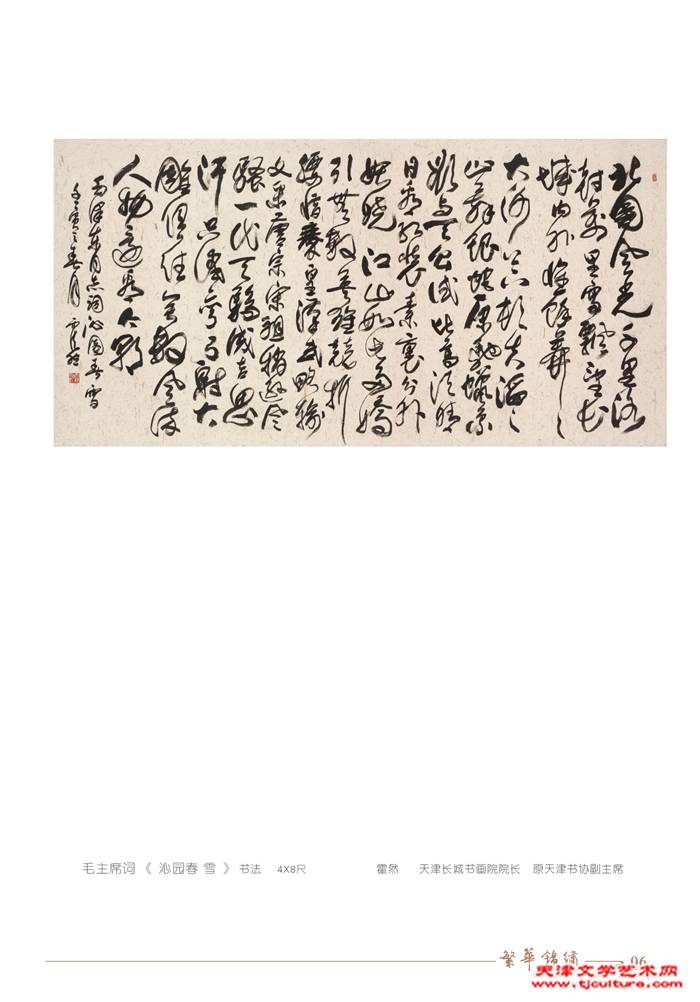 北國风光千里冰
封万里雪飘望长
城内外惟馀莽〻
大河上下顿失滔〻
山舞银蛇原驰蜡象
欲与天公试比高须晴
日看红装素裹分外
妖娆江山如此多娇
引无数英雄竞折
腰惜秦皇汉武略输
文采唐宗宋祖稍逊风
骚一代天骄成吉思
汗只识弯弓射大
雕俱往矣数风流
人物还看今朝
毛泽东同志词沁园春雪
壬寅之春月 霍然
毛主席词《 沁园春 雪 》书法 4X8尺
霍然 天津长城书画院院长 原天津书协副主席
繁華錦繡 06
天津文学艺术网
www.tjculture.com